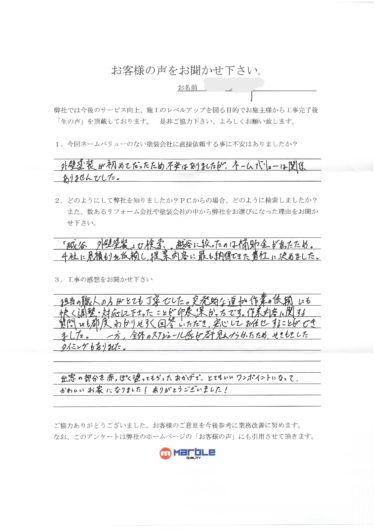 お客様の声をお聞かせ下さい。
お名前
弊社では今後のサービス向上、施工のレベルアップを図る目的でお施主様から工事完了後
「生の声」を頂戴しております。 是非ご協力下さい。よろしくお願い致します。
1．今回ネームバリューのない塗装会社に直接依頼する事に不安はありましたか？
外壁塗装が初めてだったため不安はありましたが、ネームバリューは関係
ありませんでした。
2．どのようにして弊社を知りましたか？PCからの場合、どのように検索しましたか？
また、数あるリフォーム会社や塗装会社の中から弊社をお選びになった理由をお聞か
せ下さい。
「越谷 外壁塗装」で検索。越谷に絞ったのは補助金が出たため。
4社に見積もりを依頼し、提案内容に最も納得できた貴社に決めました。
3．工事の感想をお聞かせ下さい
担当の職人の方がとても丁寧でした。突発的な追加作業の依頼にも
快く調整・対応して下さったことが印象深かったです。作業内容に関する
質問にも都度わかりやすく回答いただき、安心してお任せすることができ
ました。 一方、全体のスケジュール感が都度見えづらかったため、やきもきした
タイミングもありました。
出窓の部分を赤っぽく塗ってもらったおかげで、とてもいいワンポイントになって、
かわいいお家になりました！ありがとうございました！
ご協力ありがとうございました。お客様のご意見を今後参考に業務改善に努めます。
なお、このアンケートは弊社のホームページの「お客様の声」にも引用させて頂きます。
marble
QUALITY